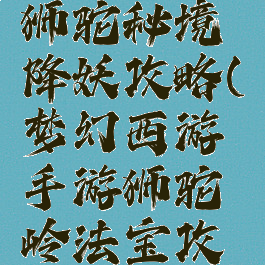 狮驼秘境
降妖攻略(
梦幻西游
手游狮驼
岭法宝攻